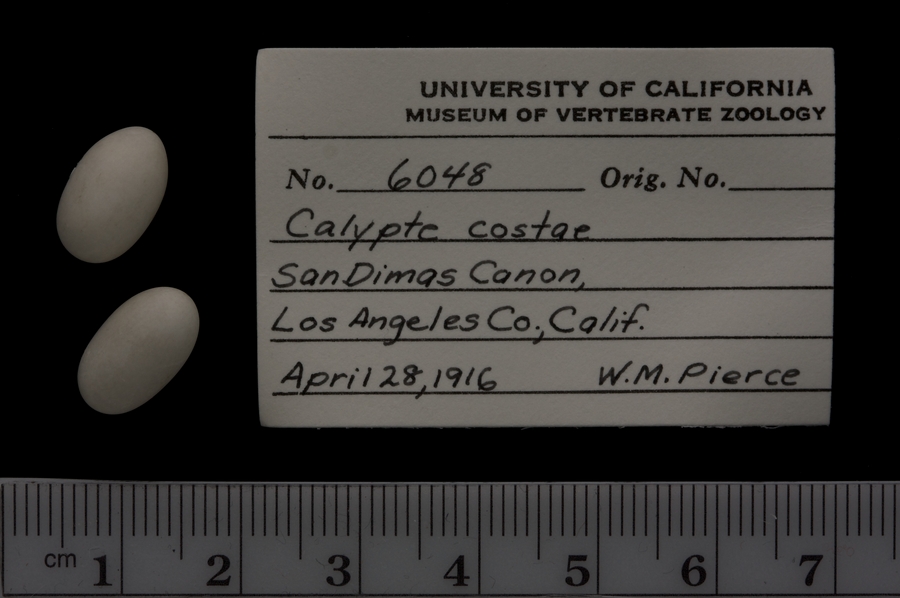 UNIVERSITY OF CALIFORNIA
MUSEUM OF VERTEBRATE ZOOLOGY
No. 6048 Orig. No.
Calypte costae
San Dimas Canon,
Los Angeles Co., Calif.
April 28, 1916 W.M. Pierce
cm 1 2 3 4 5 6 7